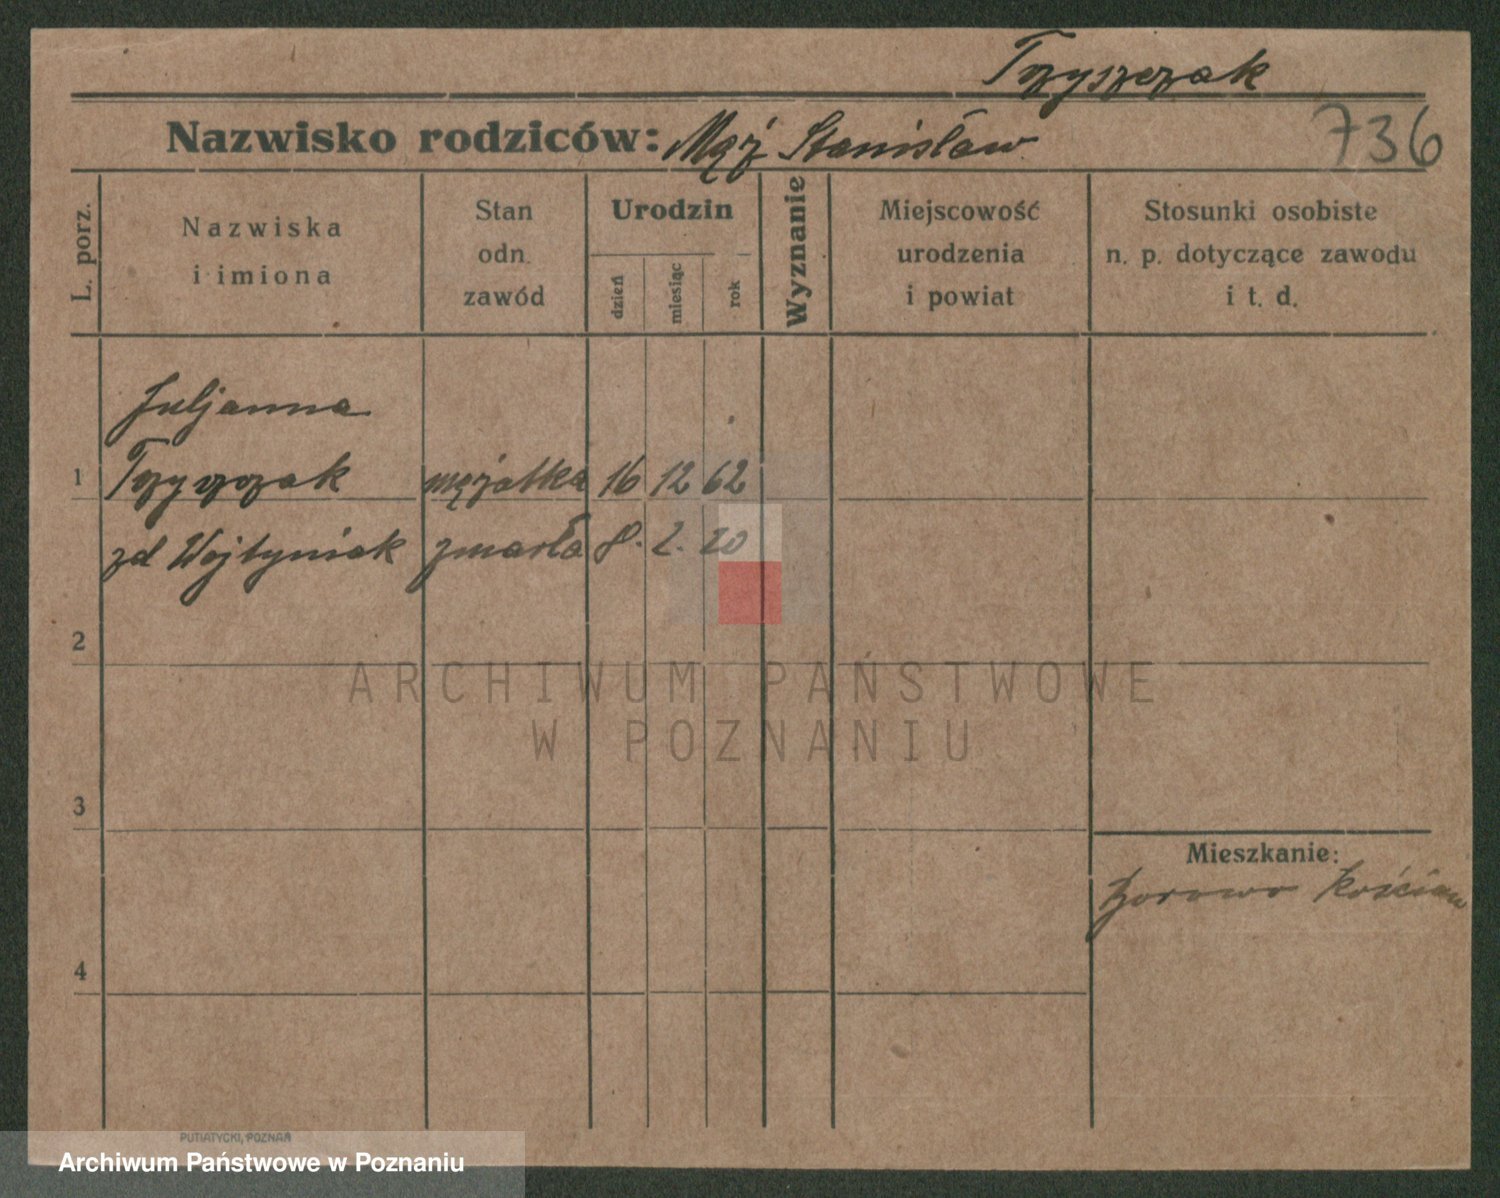 Tzyszczak
Nazwisko rodziców: Mąż Stanisław
736
L. porz.
Nazwiska
i imiona
Stan
odn.
zawód
Urodzin
dzień
miesiąc
rok
Wyznanie
Miejscowość
urodzenia
i powiat
Stosunki osobiste
n. p. dotyczące zawodu
i t. d.
Juljanna
1 mężatka 16 12 62
zd Wojtyniak zmarła 8. 2. 20
2
ARCHIWUM PAŃSTWOWE
W POZNANIU
3
Mieszkanie:
Kościan
4
PUTIATYCKI, POZNAŃ
Archiwum Państwowe w Poznaniu